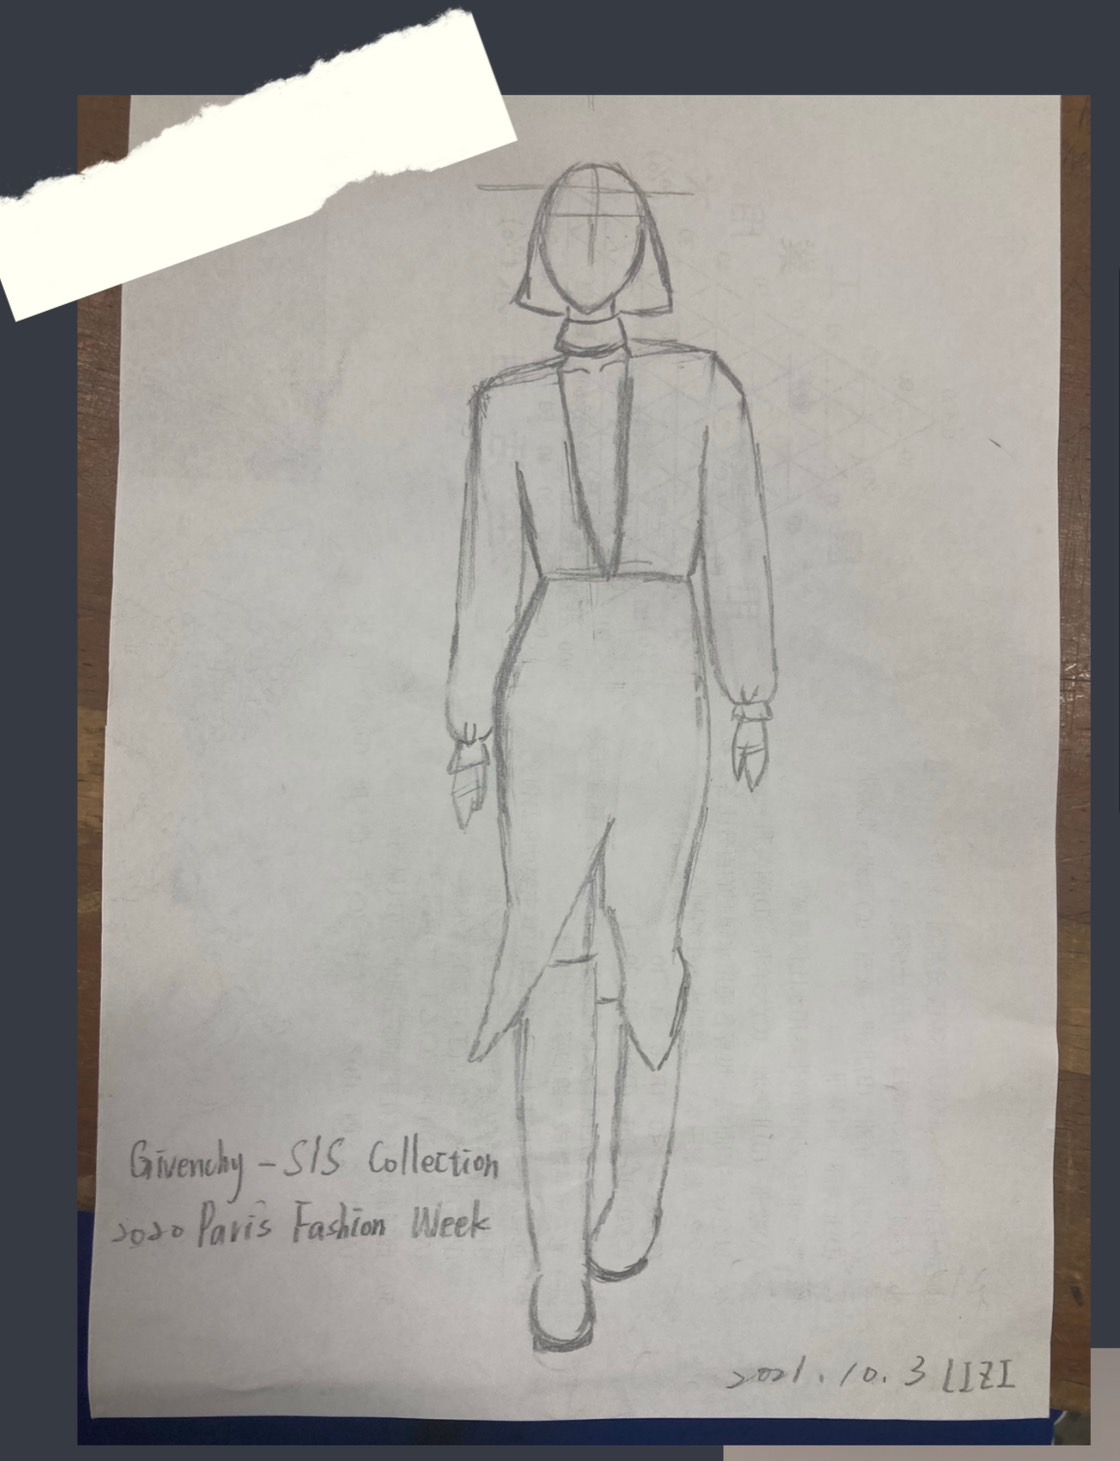 Givenchy - S/S Collection
2020 Paris Fashion Week
2021.10.3 LIZI